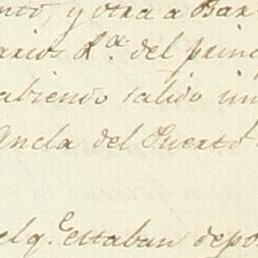 nto, y otra a Bar
arios R.ª del princ
abiendo salido un
Ancla del Puerto
elq.e estaban depo